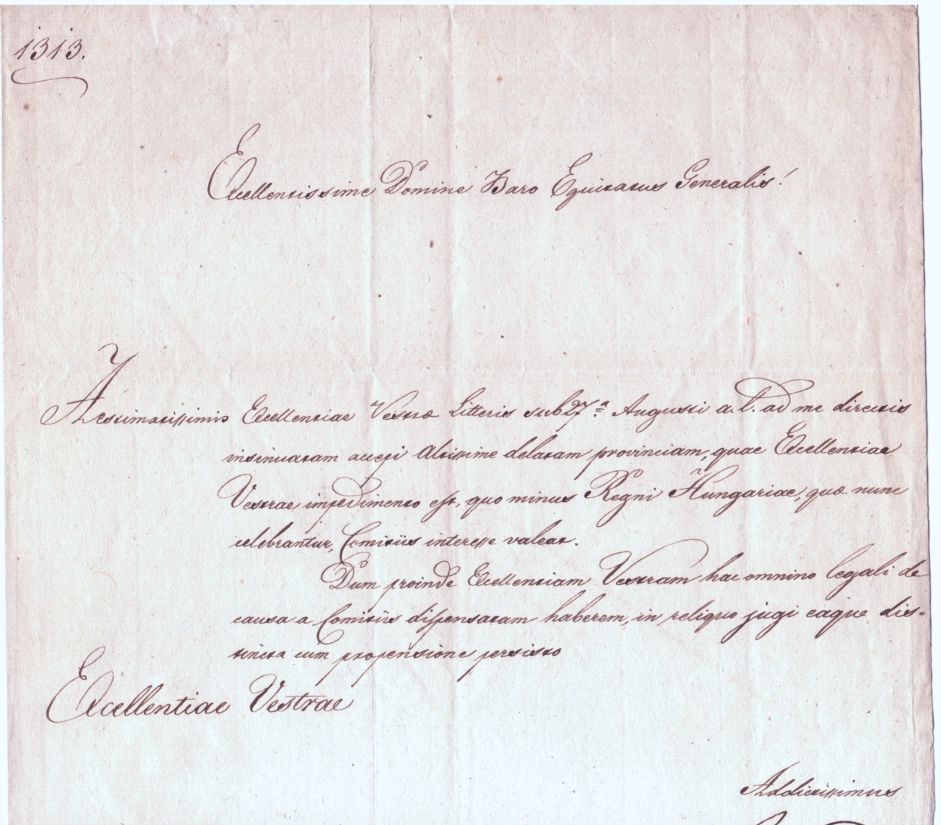 1313.
Excellentissime Domine Baro Equitatus Generalis!
Aestimatissimis Excellentiae Vestrae Litteris sub 27ª Augusti a. l. ad me directis
insinuatam accepi Altissime delatam provinciam, quae Excellentiae
Vestrae impedimento est, quo minus Regni Hungariae, quae nunc
celebrantur, Comitiis interesse valeat.
Dum proinde Excellentiam Vestram hac omnino legali de
causa a Comitiis dispensatam haberem, in reliquo jugi eaque dis=
tincta cum propensione persisto
Excellentiae Vestrae
Addictissimus